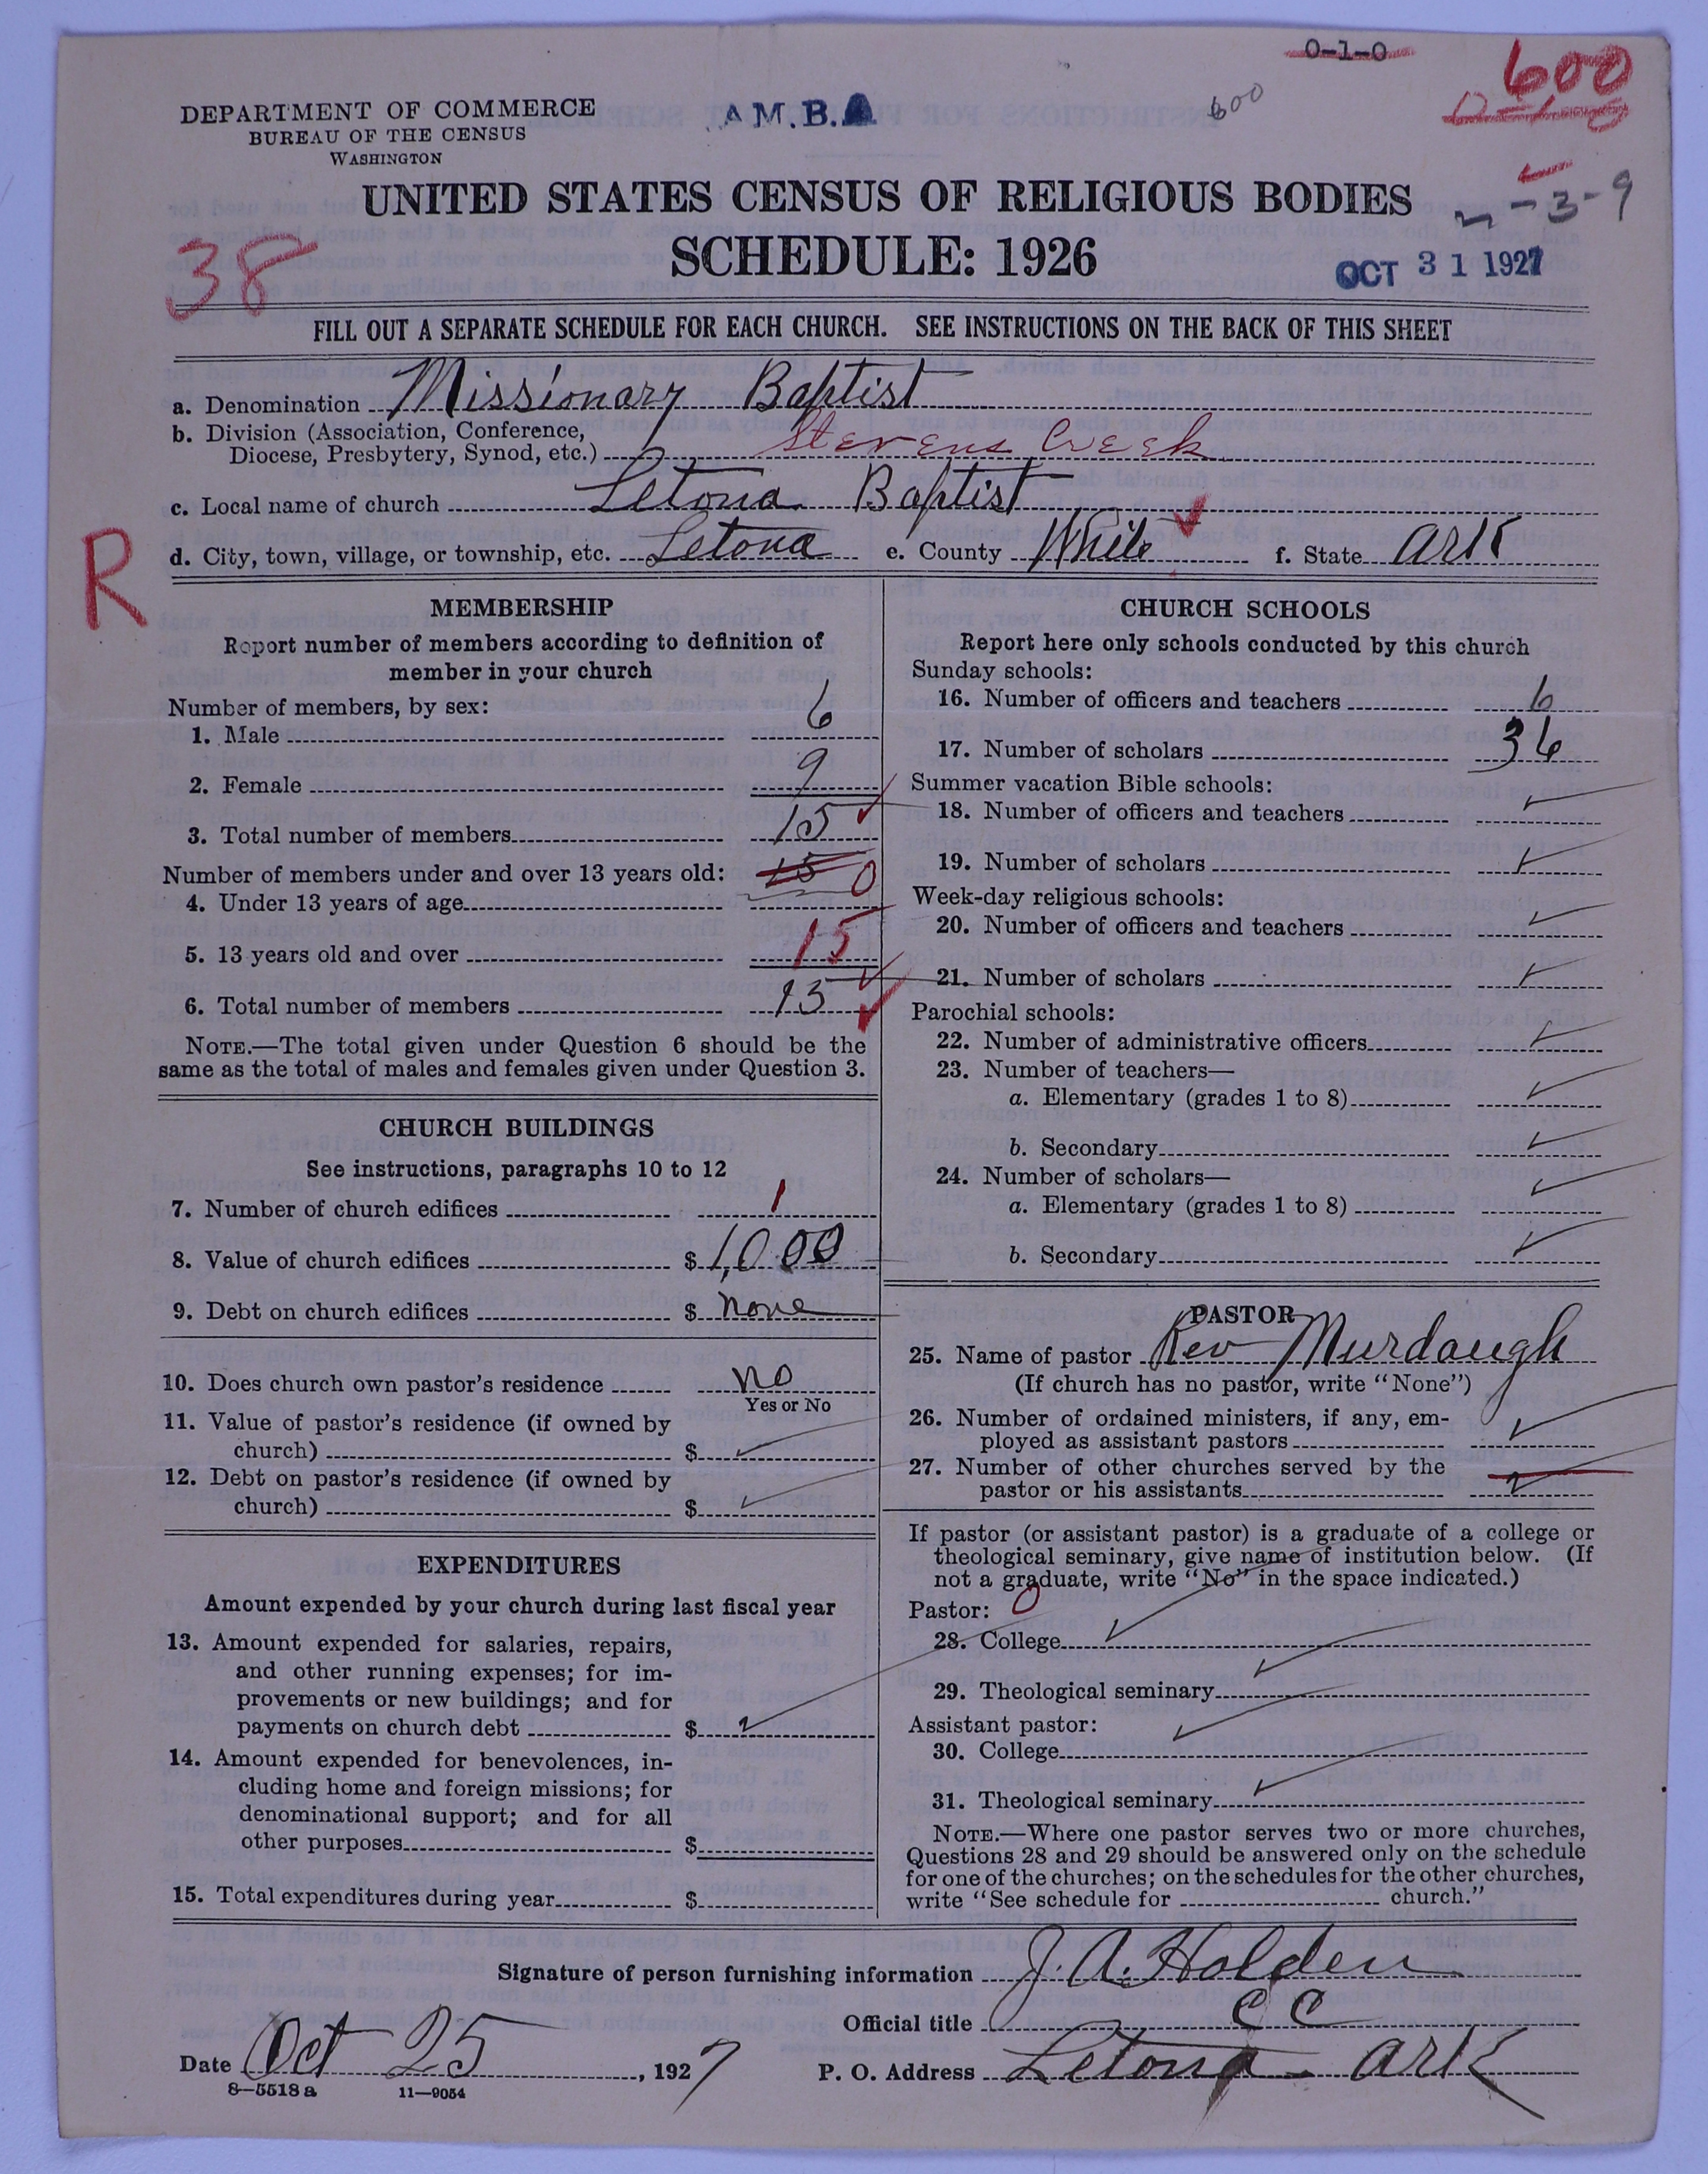 0-1-0
600
DEPARTMENT OF COMMERCE
BUREAU OF THE CENSUS
WASHINGTON
A M. B. A
600
UNITED STATES CENSUS OF RELIGIOUS BODIES
-3-9
38
SCHEDULE: 1926
OCT 31 1927
FILL OUT A SEPARATE SCHEDULE FOR EACH CHURCH. SEE INSTRUCTIONS ON THE BACK OF THIS SHEET
a. Denomination Missionary Baptist
b. Division (Association, Conference,
Diocese, Presbytery, Synod, etc.) Stevens Creek
c. Local name of church Letona Baptist
R
d. City, town, village, or township, etc. Letona e. County White f. State Ark
MEMBERSHIP
Report number of members according to definition of
member in your church
Number of members, by sex:
1. Male 6
2. Female 9
3. Total number of members 15
Number of members under and over 13 years old: 15 0
4. Under 13 years of age
5. 13 years old and over 15
6. Total number of members 15
NOTE.—The total given under Question 6 should be the
same as the total of males and females given under Question 3.
CHURCH BUILDINGS
See instructions, paragraphs 10 to 12
7. Number of church edifices 1
8. Value of church edifices $ 1,000
9. Debt on church edifices $ none
10. Does church own pastor's residence no
Yes or No
11. Value of pastor's residence (if owned by
church) $
12. Debt on pastor's residence (if owned by
church) $
EXPENDITURES
Amount expended by your church during last fiscal year
13. Amount expended for salaries, repairs,
and other running expenses; for im-
provements or new buildings; and for
payments on church debt $
14. Amount expended for benevolences, in-
cluding home and foreign missions; for
denominational support; and for all
other purposes $
15. Total expenditures during year $
CHURCH SCHOOLS
Report here only schools conducted by this church
Sunday schools:
16. Number of officers and teachers 6
17. Number of scholars 36
Summer vacation Bible schools:
18. Number of officers and teachers
19. Number of scholars
Week-day religious schools:
20. Number of officers and teachers
21. Number of scholars
Parochial schools:
22. Number of administrative officers
23. Number of teachers—
a. Elementary (grades 1 to 8)
b. Secondary
24. Number of scholars—
a. Elementary (grades 1 to 8)
b. Secondary
PASTOR
25. Name of pastor Rev Murdaugh
(If church has no pastor, write "None")
26. Number of ordained ministers, if any, em-
ployed as assistant pastors
27. Number of other churches served by the
pastor or his assistants
If pastor (or assistant pastor) is a graduate of a college or
theological seminary, give name of institution below. (If
not a graduate, write "No" in the space indicated.)
Pastor: 0
28. College
29. Theological seminary
Assistant pastor:
30. College
31. Theological seminary
NOTE.—Where one pastor serves two or more churches,
Questions 28 and 29 should be answered only on the schedule
for one of the churches; on the schedules for the other churches,
write "See schedule for church."
Signature of person furnishing information J. A. Holden
Official title CC
Date Oct 25, 1927 P. O. Address Letona Ark
8—5518a 11—9054